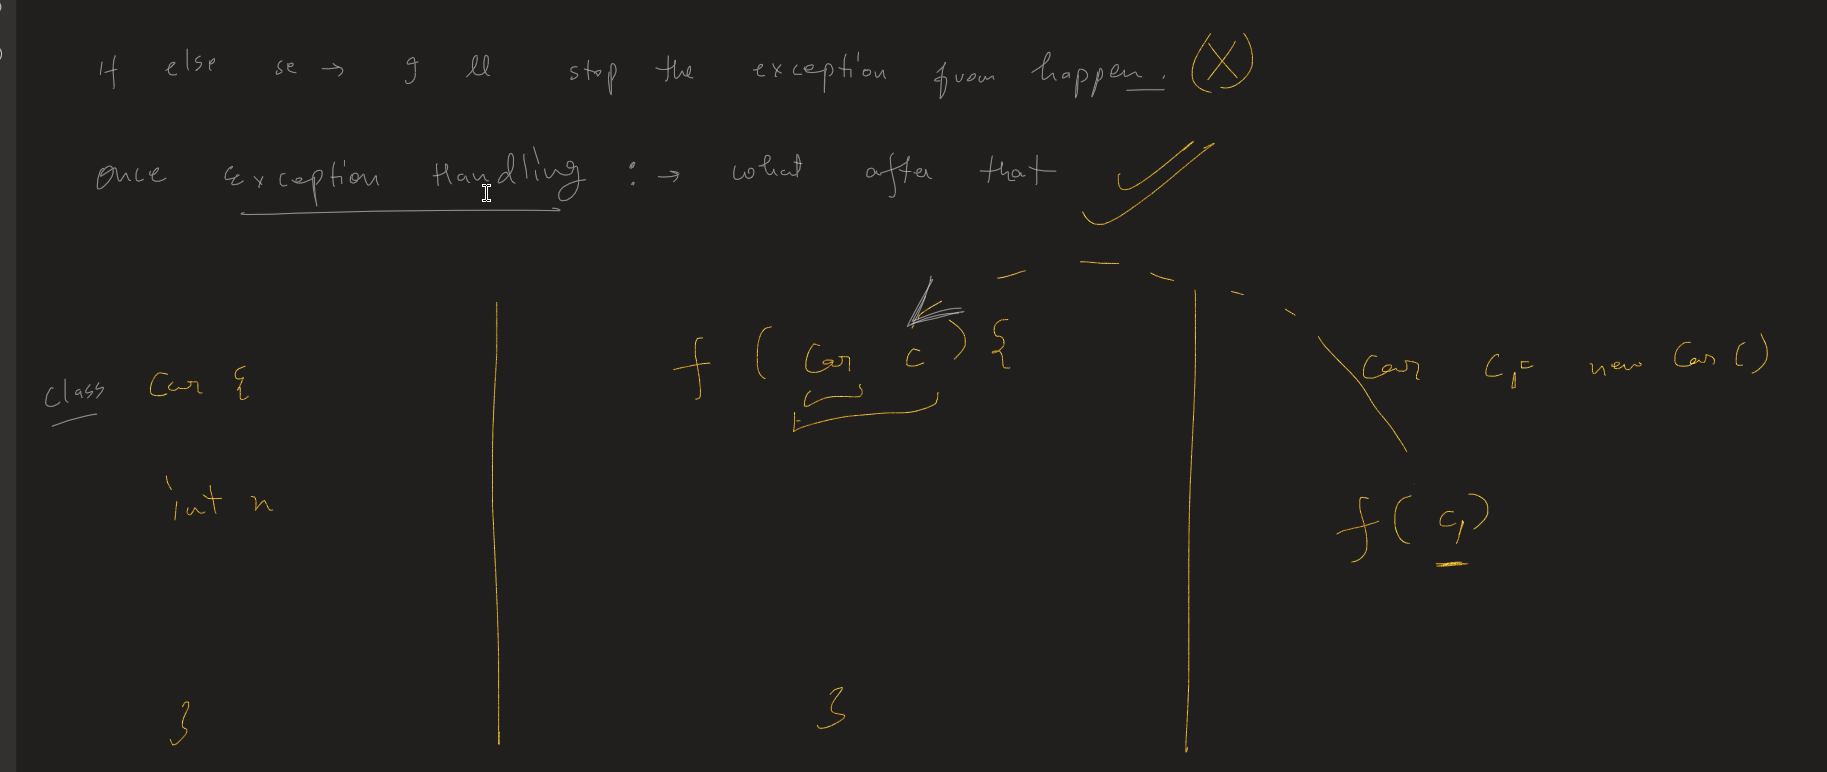 If else se → I ll stop the exception from happen. (X)
once Exception Handling : → what after that
f ( Car c ) {
class Car {
Car c1 = new Car ( )
int n
f ( c1 )
}
}